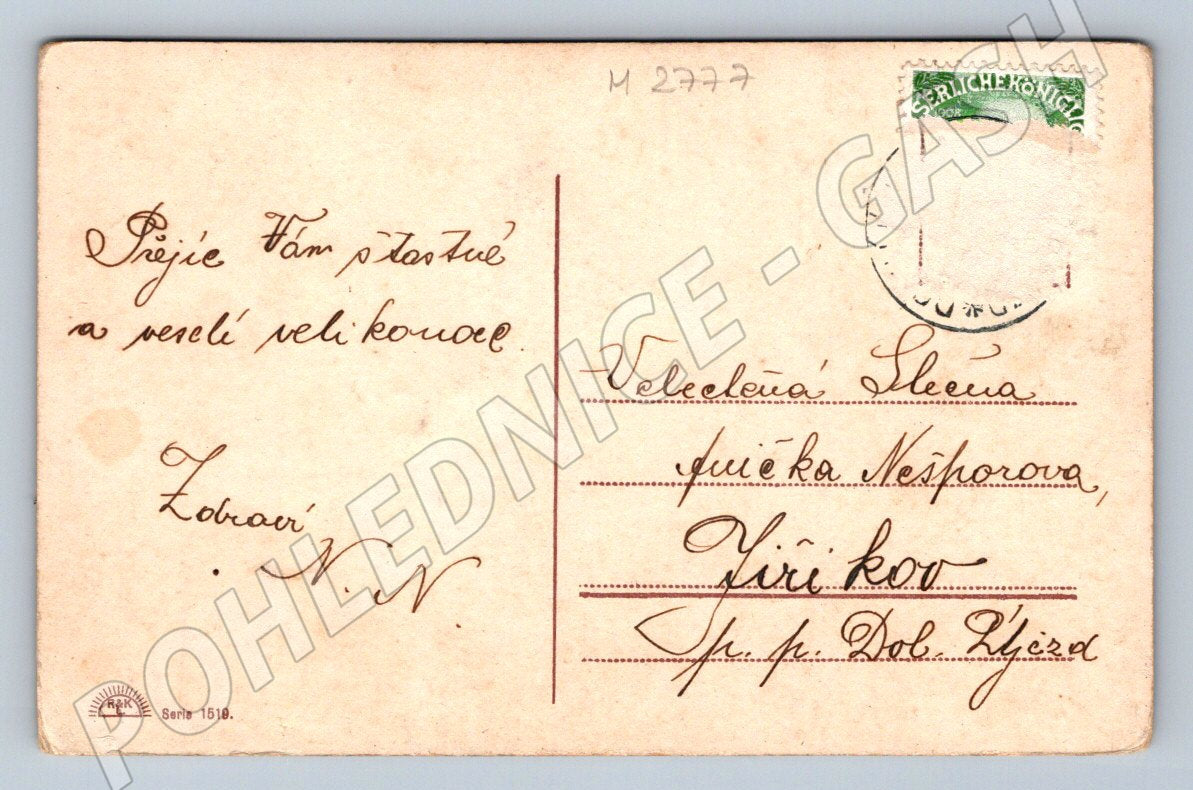 M 2777
SERLICHEKÖNIGLIC
1908
Přejíc Vám štastné
a veselé velikonoce.
Zdraví
N. N
Velectěná Slečna
Anička Nešporova,
Jiřikov
p. p. Dol. Újezd
R&K
Serie 1519.
POHLEDNICE - GASH